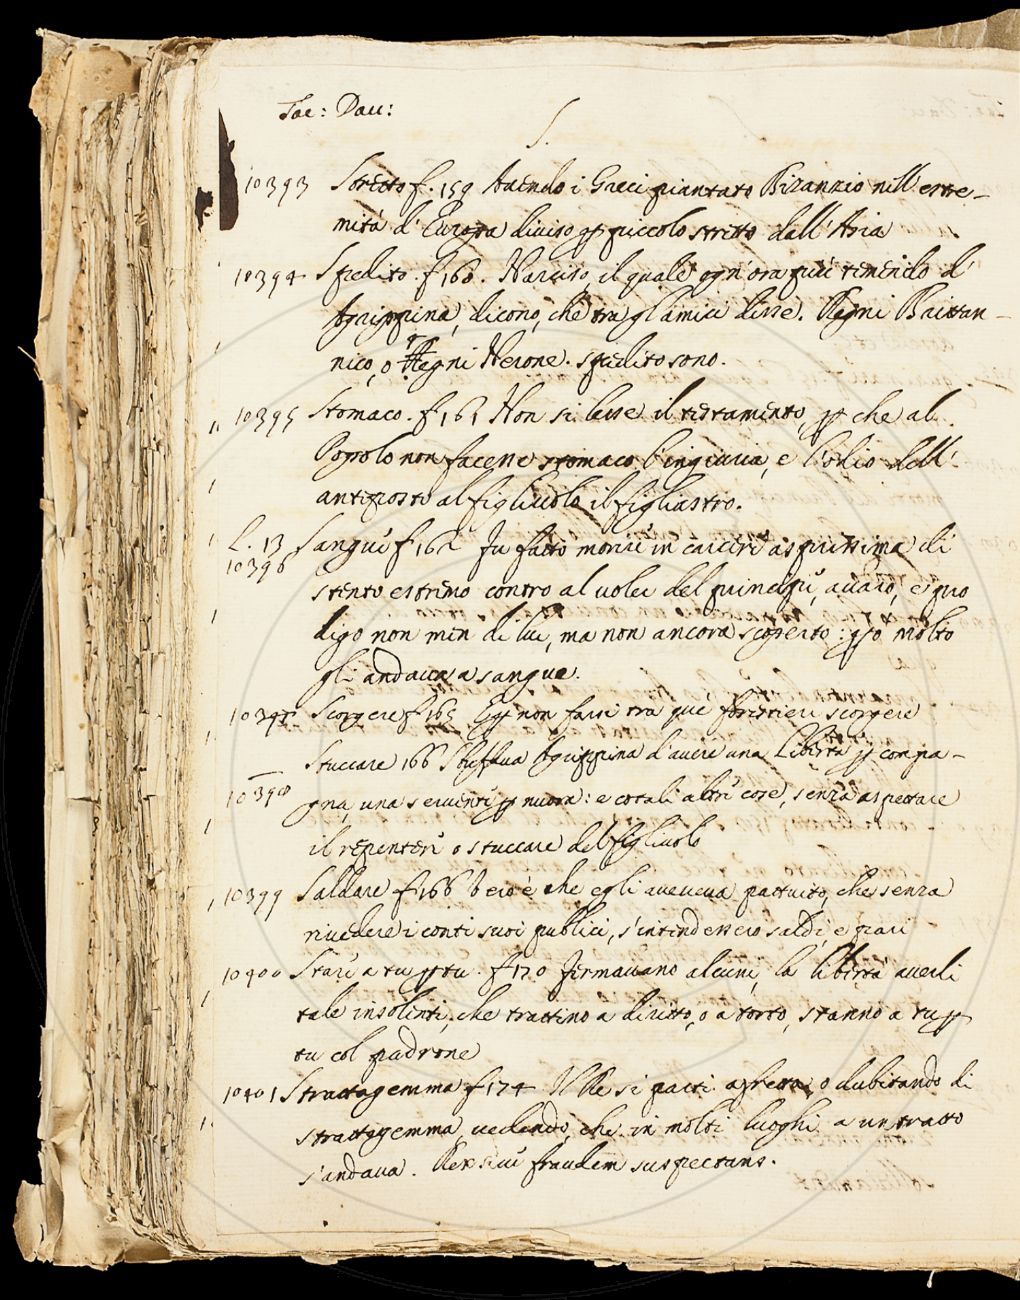 Tac: Dav:
S.
10393 Stretto f. 159 Avendo i Greci piantato Bizanzio nell'estre-
mità d'Europa diviso p piccolo stretto dall'Asia
10394 Spedito. f 160. Narciso, il quale ogn'ora più temendo d'
Agrippina, dicono, che tra gl'amici disse. Regni Brittan-
nico, o Regni Nerone. spedito sono.
10395 Stomaco. f 161 Non si lesse il testamento, p che al
Popolo non facesse stomaco l'ingiuria, e l'odio dell'
antiposto al figliuolo il figliastro.
L. 13 Sangue f 162 Fu fatto morire in carcere asprissima di
10396
stento estremo contro al voler del principe, avaro, e pro
digo non men di lui, ma non ancora scoperto: pso molto
gli andava a sangue.
10397 Scorgere f 165 E p non farsi tra que' forestieri scorgere
Stuccare 166 Agrippina d'avere una Liberta p compa-
10398
gna, una servente p nuora: e cotali altre cose, senza aspettare
il repentere o stuccare del figliuolo
10399 Saldare f 166 b cio è che egli aveva pattuito, che senza
rivedere i conti suoi publici, s'intendessero saldi, e pari
10400 Stare a tu p tu. f 170 Fermavano alcuni, la libertà averli
tale insolenti, che trattino a diritto, o a torto, stanno a tu p
tu col padrone
10401 Strattagemma f 174 Il Re si partì a fretta, o dubitando di
strattegemma, vedendo, che in molti luoghi a un tratto
s'andava. Rex sive fraudem suspectans.